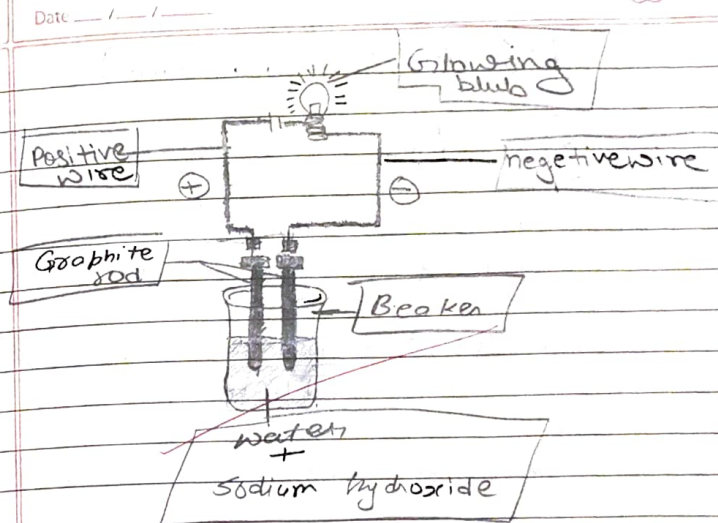 Date __/__/__
Glowing
blub
Positive
wire
negetive wire
+
−
Graphite
rod
Beaker
water
+
sodium hydroxide